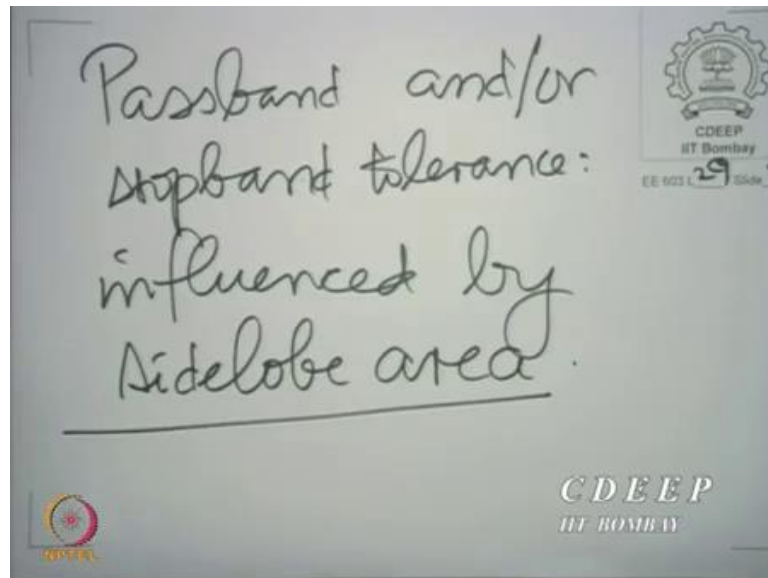 Passband and/or
stopband tolerance:
influenced by
sidelobe area.
CDEEP
IIT Bombay
EE 603 L 29 Slide
CDEEP
IIT BOMBAY
NPTEL